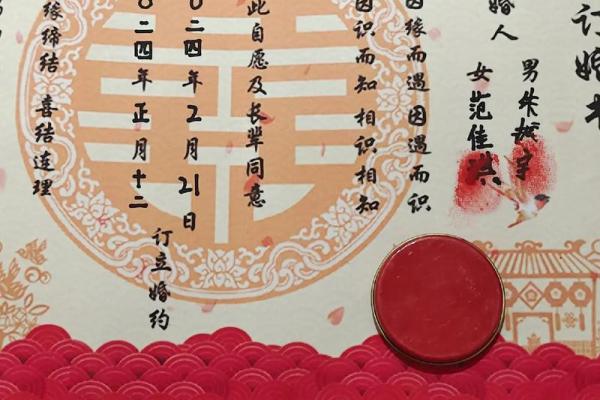 订婚书
婚人
男朱宇
女范佳
因缘而遇 因遇而识
因识而知 相识相知
此自愿及长辈同意
〇二四年2月21日
〇二四年正月十二
订立婚约
缘缔结 喜结连理